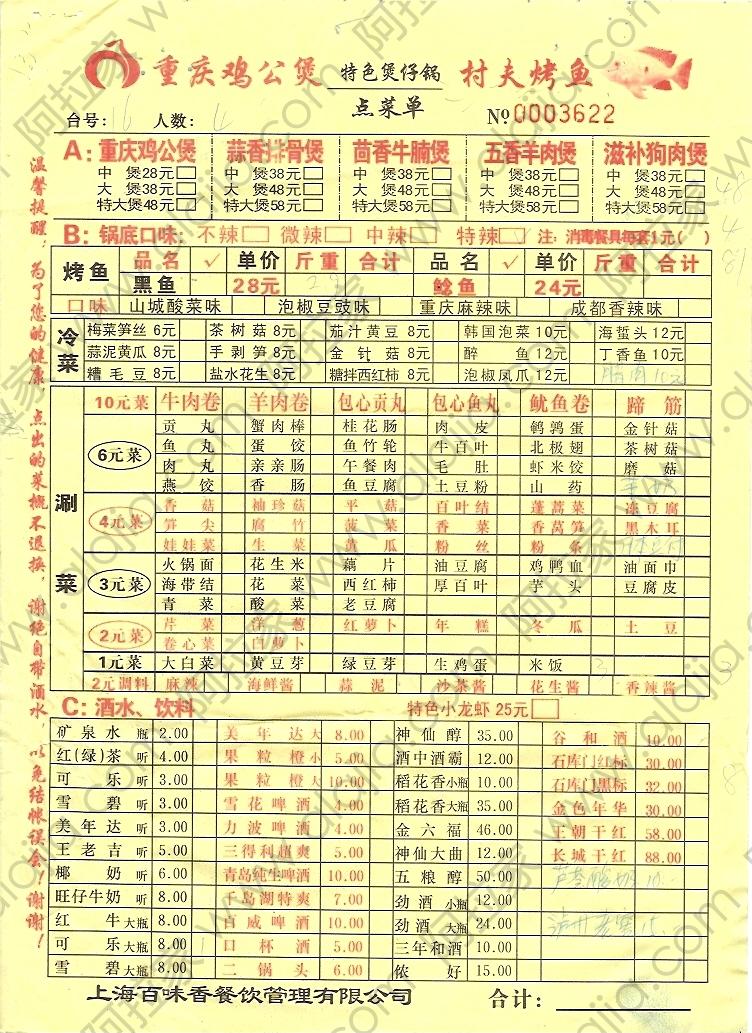 重庆鸡公煲 特色煲仔锅 村夫烤鱼
点菜单
台号: 16 人数: 4 № 0003622
A: 重庆鸡公煲 蒜香排骨煲 茴香牛腩煲 五香羊肉煲 滋补狗肉煲
中 煲28元 中 煲38元 中 煲38元 中 煲38元 中 煲38元
大 煲38元 大 煲48元 大 煲48元 大 煲48元 大 煲48元
特大煲48元 特大煲58元 特大煲58元 特大煲58元 特大煲58元
B: 锅底口味: 不辣 微辣 中辣 特辣 注: 消毒餐具每套1元( )
烤鱼 品名 ✓ 单价 斤重 合计 品名 ✓ 单价 斤重 合计
黑鱼 28元 鲶鱼 24元
口味 山城酸菜味 泡椒豆豉味 重庆麻辣味 成都香辣味
冷菜
梅菜笋丝 6元 茶树菇 8元 茄汁黄豆 8元 韩国泡菜 10元 海蜇头 12元
蒜泥黄瓜 8元 手剥笋 8元 金针菇 8元 醉鱼 12元 丁香鱼 10元
糟毛豆 8元 盐水花生 8元 糖拌西红柿 8元 泡椒凤爪 12元
涮菜
10元菜 牛肉卷 羊肉卷 包心贡丸 包心鱼丸 鱿鱼卷 蹄筋
6元菜
贡丸 蟹肉棒 桂花肠 肉皮 鹌鹑蛋 金针菇
鱼丸 蛋饺 鱼竹轮 牛百叶 北极翅 茶树菇
肉丸 亲亲肠 午餐肉 毛肚 虾米饺 磨菇
燕饺 香肠 鱼豆腐 土豆粉 山药
4元菜
香菇 袖珍菇 平菇 百叶结 蓬蒿菜 冻豆腐
笋尖 腐竹 菠菜 香菜 香莴笋 黑木耳
娃娃菜 生菜 黄瓜 粉丝 粉条
3元菜
火锅面 花生米 藕片 油豆腐 鸡鸭血 油面巾
海带结 花菜 西红柿 厚百叶 芋头 豆腐皮
青菜 酸菜 老豆腐
2元菜
芹菜 洋葱 红萝卜 年糕 冬瓜 土豆
卷心菜 白萝卜
1元菜 大白菜 黄豆芽 绿豆芽 生鸡蛋 米饭
2元调料 麻辣 海鲜酱 蒜泥 沙茶酱 花生酱 香辣酱
C: 酒水、饮料 特色小龙虾 25元
矿泉水 瓶 2.00 美年达 大 8.00 神仙醇 35.00 谷和酒 10.00
红(绿)茶 听 4.00 果粒橙 小 5.00 酒中酒霸 12.00 石库门红标 30.00
可乐 听 3.00 果粒橙 大 10.00 稻花香 小瓶 10.00 石库门黑标 32.00
雪碧 听 3.00 雪花啤酒 4.00 稻花香 大瓶 35.00 金色年华 30.00
美年达 听 3.00 力波啤酒 4.00 金六福 46.00 王朝干红 58.00
王老吉 听 5.00 三得利超爽 5.00 神仙大曲 12.00 长城干红 88.00
椰奶 听 6.00 青岛纯生啤酒 10.00 五粮醇 50.00
旺仔牛奶 听 8.00 千岛湖特爽 7.00 劲酒 小瓶 12.00
红牛 大瓶 8.00 百威啤酒 10.00 劲酒 大瓶 24.00
可乐 大瓶 8.00 口杯酒 5.00 三年和酒 10.00
雪碧 大瓶 8.00 二锅头 6.00 侬好 15.00
上海百味香餐饮管理有限公司 合计:
温馨提醒: 为了您的健康 点出的菜概不退换, 谢绝自带酒水, 以免结帐误会! 谢谢!
阿拉家 www.alajia.com